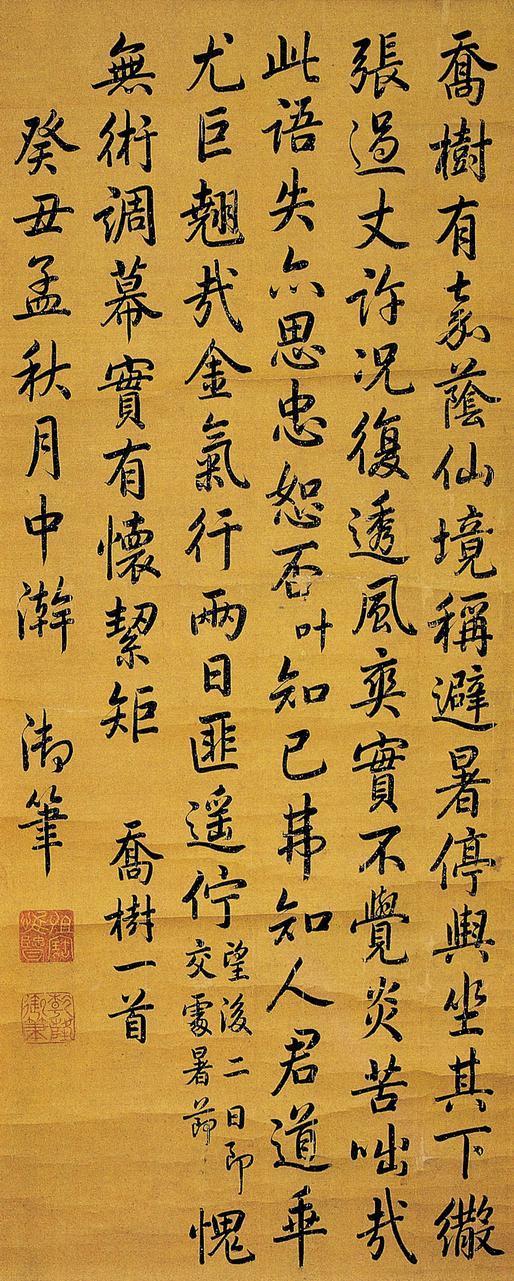 喬樹有嘉蔭仙境稱避暑停輿坐其下繖
張過丈許況復透風爽實不覺炎苦咄哉
此語失亦思忠恕否叶知己弗知人君道乖
尤巨翹哉金氣行兩日匪遥佇望後二日即交處暑節愧
無術調幕實有懷絜矩 喬樹一首
癸丑孟秋月中澣 御筆